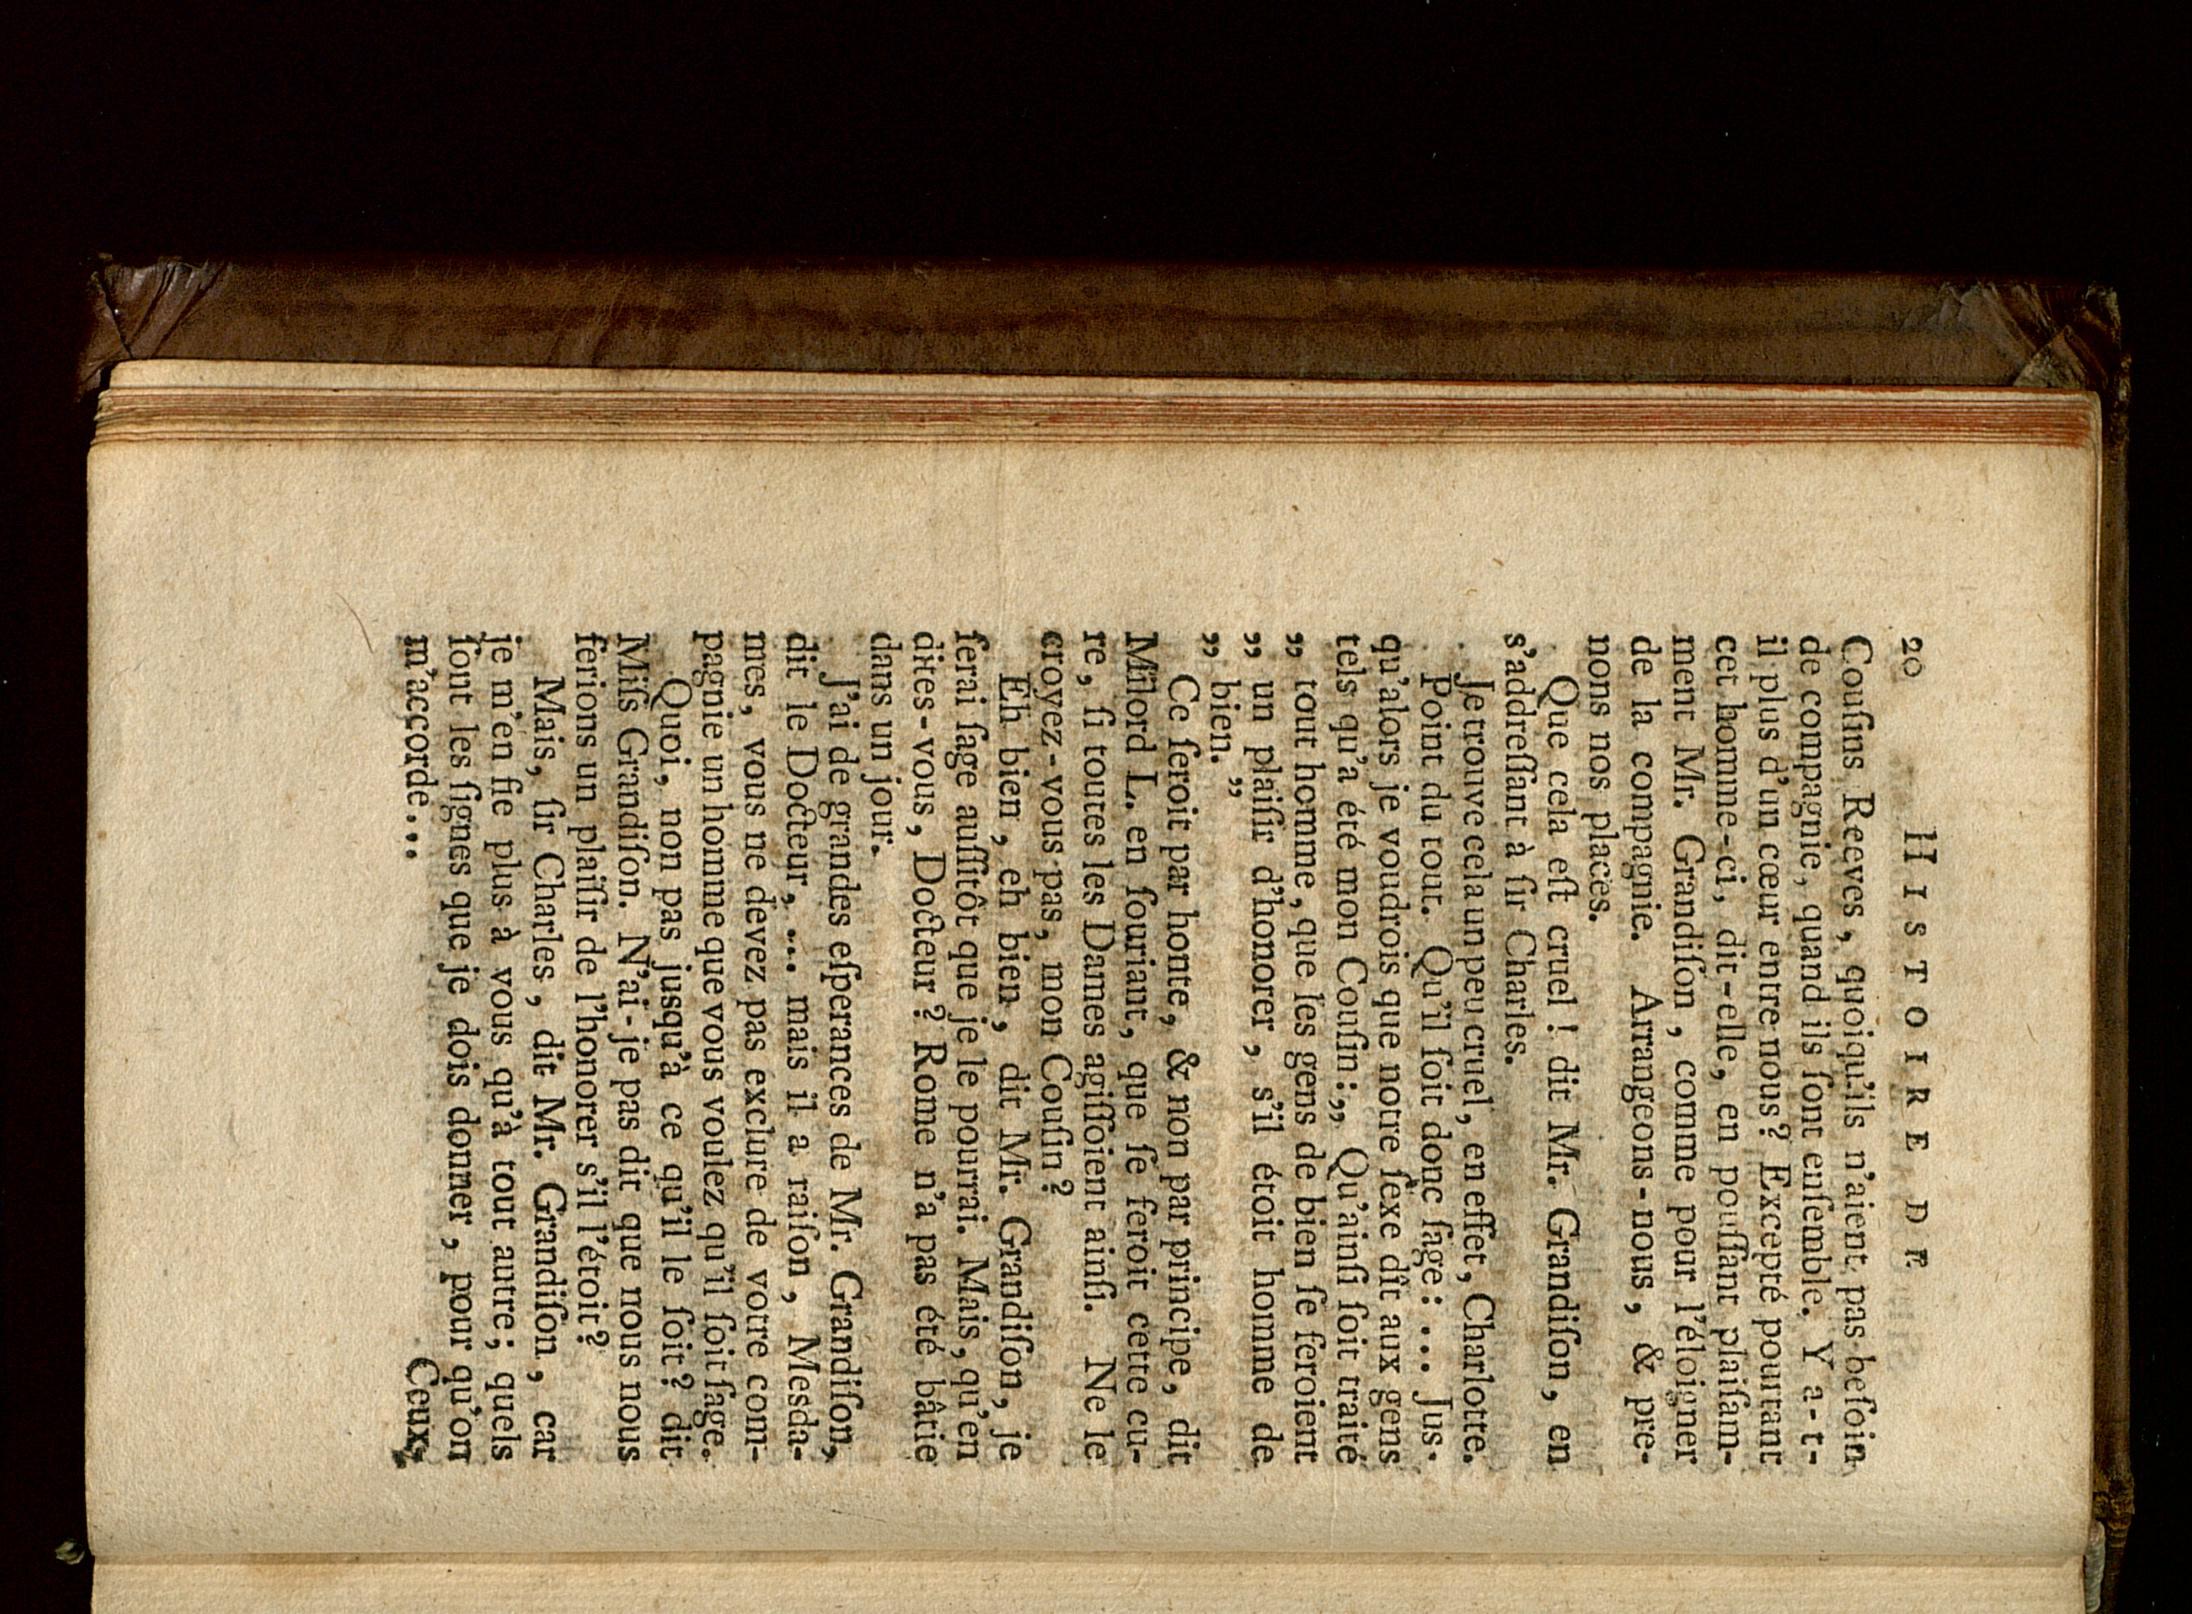 20 HISTOIRE DE
Couſins Reeves, quoiqu'ils n'aient pas beſoin
de compagnie, quand ils ſont enſemble. Y a-t-
il plus d'un cœur entre nous? Excepté pourtant
cet homme-ci, dit-elle, en pouſſant plaiſam-
ment Mr. Grandiſon, comme pour l'éloigner
de la compagnie. Arrangeons-nous, & pre-
nons nos places.
Que cela eſt cruel! dit Mr. Grandiſon, en
s'addreſſant à ſir Charles.
Je trouve cela un peu cruel, en effet, Charlotte.
Point du tout. Qu'il ſoit donc ſage: ... Jus-
qu'alors je voudrois que notre ſexe dît aux gens
tels qu'a été mon Couſin: „ Qu'ainſi ſoit traité
„ tout homme, que les gens de bien ſe feroient
„ un plaiſir d'honorer, s'il étoit homme de
„ bien. ”
Ce ſeroit par honte, & non par principe, dit
Milord L. en ſouriant, que ſe feroit cette cu-
re, ſi toutes les Dames agiſſoient ainſi. Ne le
croyez-vous pas, mon Couſin?
Eh bien, eh bien, dit Mr. Grandiſon, je
ſerai ſage auſſitôt que je le pourrai. Mais, qu'en
dites-vous, Docteur? Rome n'a pas été bâtie
dans un jour.
J'ai de grandes eſperances de Mr. Grandiſon,
dit le Docteur, ... mais il a raiſon, Mesda-
mes, vous ne devez pas exclure de votre com-
pagnie un homme que vous voulez qu'il ſoit ſage.
Quoi, non pas jusqu'à ce qu'il le ſoit? dit
Miſs Grandiſon. N'ai-je pas dit que nous nous
ferions un plaiſir de l'honorer s'il l'étoit?
Mais, ſir Charles, dit Mr. Grandiſon, car
je m'en fie plus à vous qu'à tout autre; quels
ſont les ſignes que je dois donner, pour qu'on
m'accorde...
Ceux-